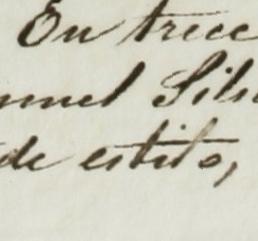 En trece
nuel Silv
de estilo,